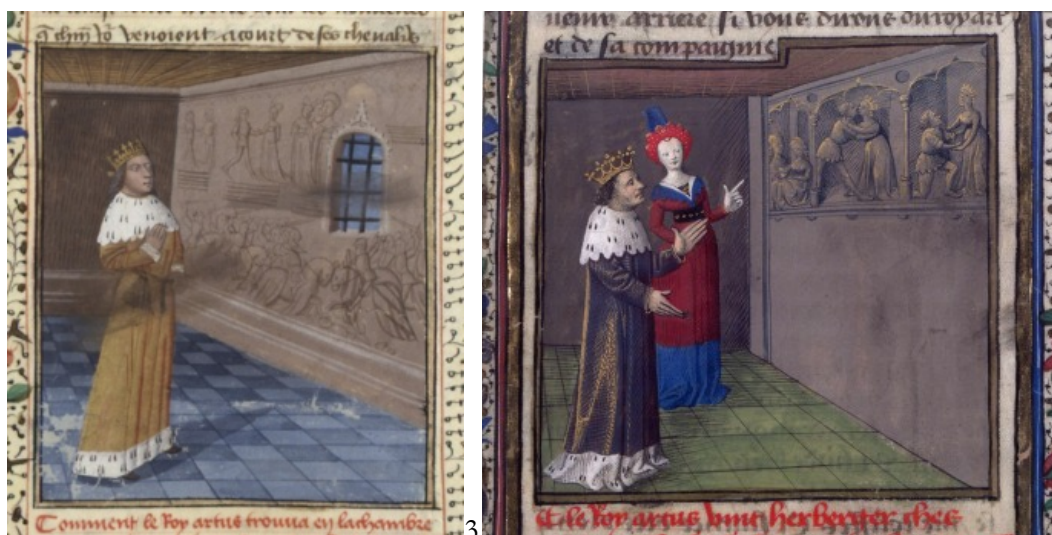 q chūn jō venoient a court de ses chevalrs
Comment le Roy artus trouva en la chambre
3
venir arriere si vous dirons du roy art
et de sa compaignie
Et le Roy artus vint herbergier ches